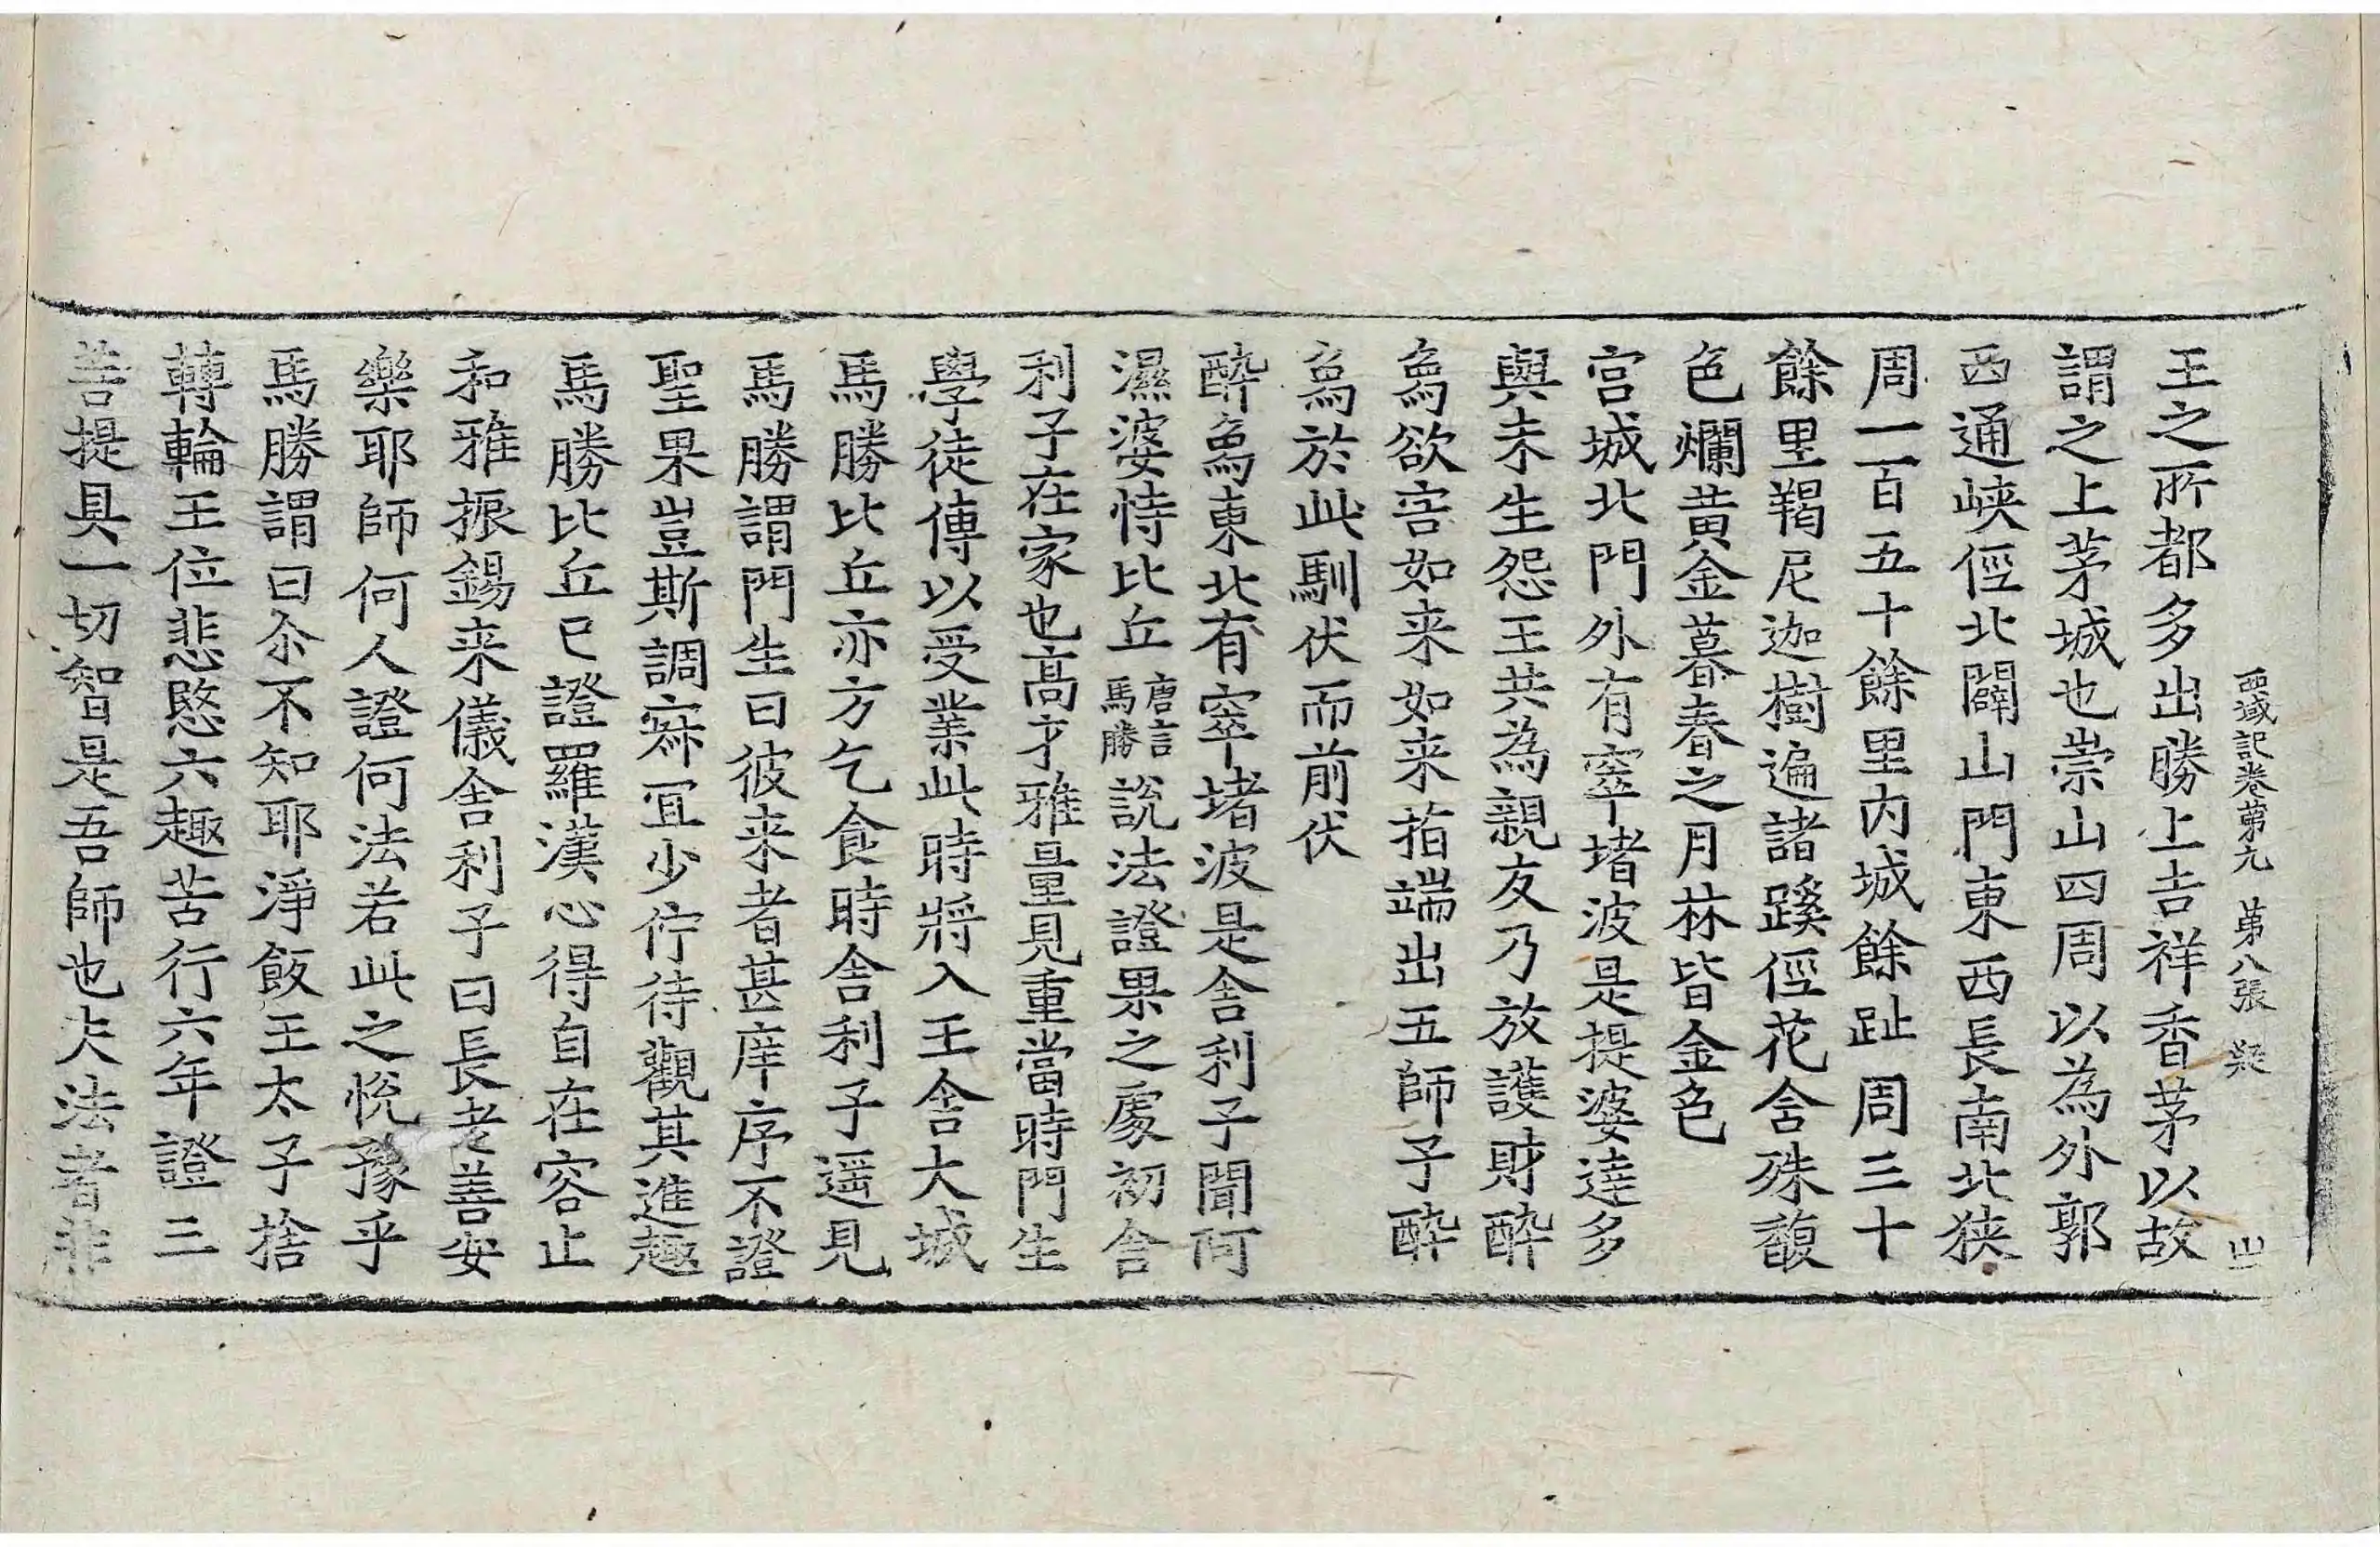 西域記卷第九 第八張 疑 山
王之所都多出勝上吉祥香茅以故
謂之上茅城也崇山四周以為外郭
西通峽徑北闢山門東西長南北狹
周一百五十餘里內城餘趾周三十
餘里羯尼迦樹遍諸蹊徑花含殊馥
色爛黃金暮春之月林皆金色
宮城北門外有窣堵波是提婆達多
與未生怨王共為親友乃放護財醉
象欲害如来如来指端出五師子醉
象於此馴伏而前伏
醉象東北有窣堵波是舍利子聞阿
濕婆恃比丘唐言馬勝說法證果之處初舍
利子在家也高才雅量見重當時門生
學徒傳以受業此時將入王舍大城
馬勝比丘亦方乞食時舍利子遥見
馬勝謂門生曰彼来者甚庠序不證
聖果豈斯調寂冝少佇待觀其進趣
馬勝比丘已證羅漢心得自在容止
和雅振錫来儀舍利子曰長老善安
樂耶師何人證何法若此之悅豫乎
馬勝謂曰尒不知耶淨飯王太子捨
轉輪王位悲愍六趣苦行六年證三
菩提具一切智是吾師也夫法者非